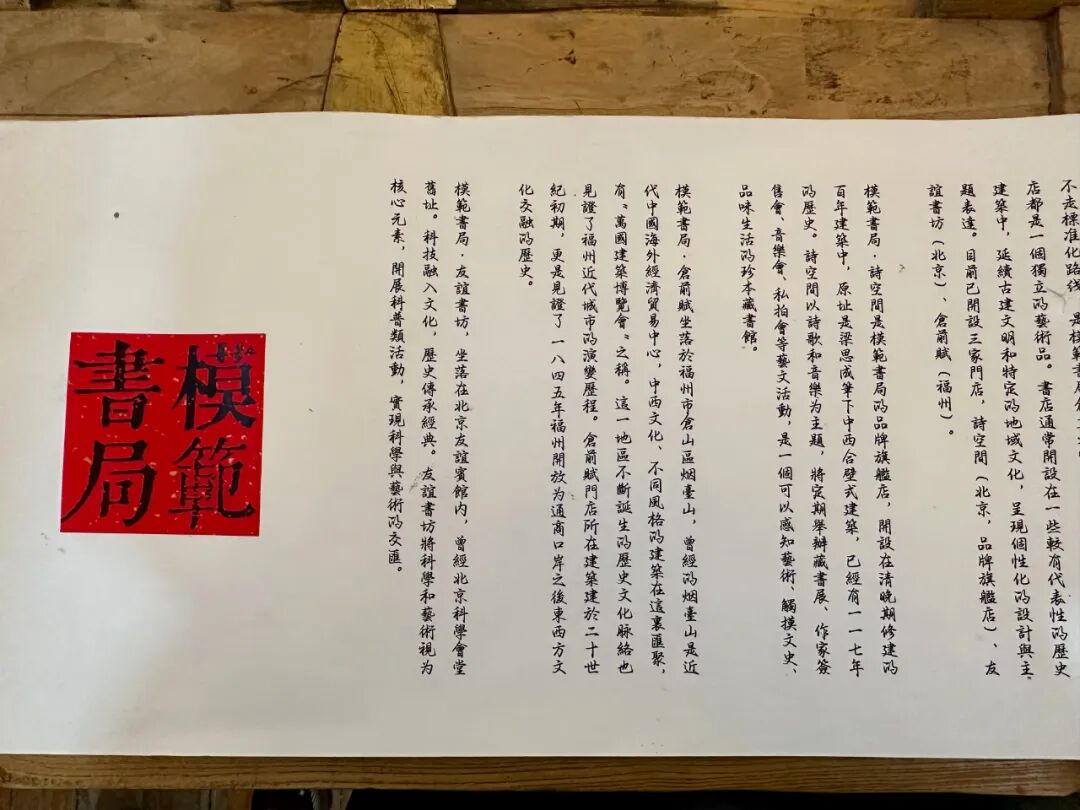 不走標准化路线
店都是一個獨立的藝術品。書店通常開設在一些較有代表性的歷史
建築中，延續古建文明和特定的地域文化，呈現個性化的設計與主
題表達。目前已開設三家門店，詩空間（北京，品牌旗艦店）、友
誼書坊（北京）、倉前賦（福州）。
模範書局·詩空間是模範書局的品牌旗艦店，開設在清晚期修建的
百年建築中，原址是梁思成筆下中西合壁式建築，已經有一一七年
的歷史。詩空間以詩歌和音樂为主題，將定期舉辦藏書展、作家簽
售會、音樂會、私拍會等藝文活動，是一個可以感知藝術、觸摸文史、
品味生活的珍本藏書館。
模範書局·倉前賦坐落於福州市倉山區烟臺山，曾經的烟臺山是近
代中國海外經濟貿易中心，中西文化、不同風格的建築在這裏匯聚，
有“萬國建築博覽會”之稱。這一地區不斷誕生的歷史文化脉絡也
見證了福州近代城市的演變歷程。倉前賦門店所在建築建於二十世
紀初期，更是見證了一八四五年福州開放为通商口岸之後東西方文
化交融的歷史。
模範書局·友誼書坊，坐落在北京友誼賓館内，曾經北京科學會堂
舊址。科技融入文化，歷史傳承經典。友誼書坊將科學和藝術視为
核心元素，開展科普類活動，實現科學與藝術的交匯。
模範
書局